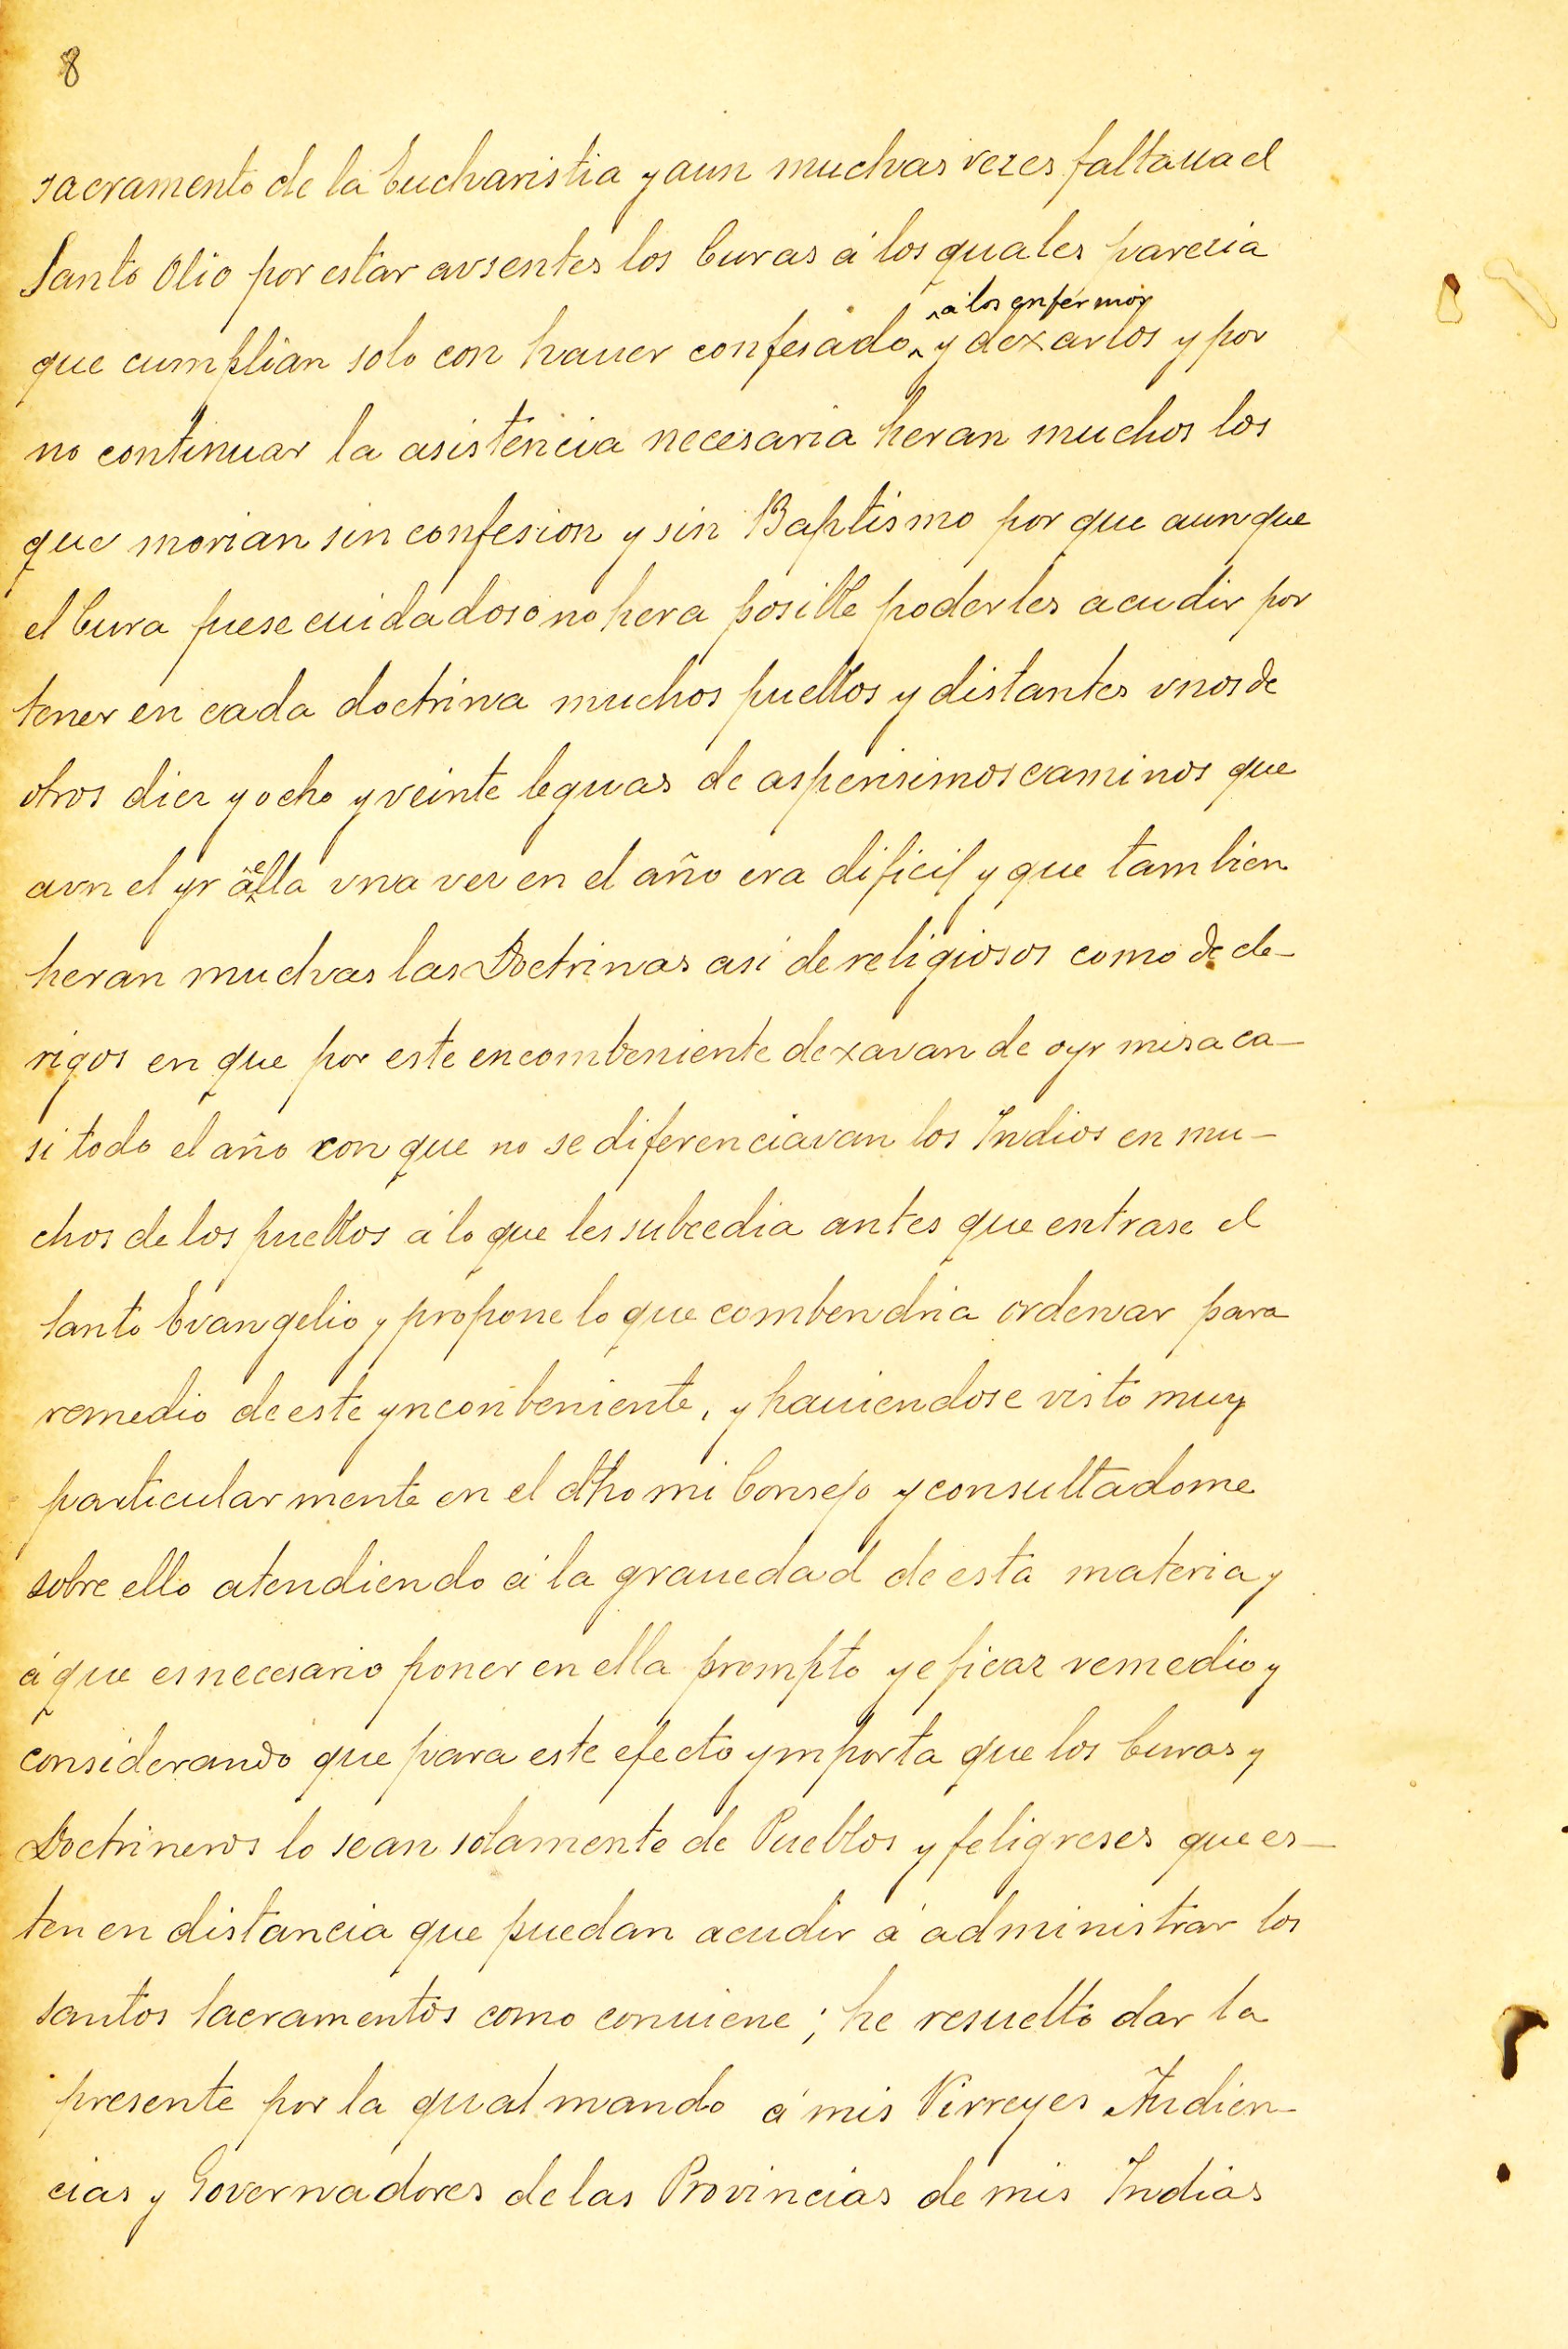 8
sacramento de la Eucharistia y aun muchas vezes faltaua el
Santo Olio por estar avsentes los Curas á los quales parezia
^a los enfermos
que cumplian solo con hauer confesado ^ y dexarlos y por
no continuar la asistencia necesaria heran muchos los
que morian sin confesion y sin Baptismo por que aunque
el Cura fuese cuidadoso no hera posible poderles acudir por
tener en cada doctrina muchos pueblos y distantes vnos de
otros diez y ocho y veinte leguas de asperisimos caminos que
avn el yr a ella vna vez en el año era dificil y que tambien
heran muchas las Doctrinas asi de religiosos como de cle-
rigos en que por este encombeniente dexavan de oyr misa ca-
si todo el año con que no se diferenciavan los Indios en mu-
chos de los pueblos á lo que les subcedia antes que entrase el
Santo Evangelio y propone lo que combendria ordenar para
remedio de este ynconbeniente, y hauiendose visto muy
particularmente en el dho mi Consejo y consultadome
sobre ello atendiendo á la grauedad de esta materia y
á que es necesario poner en ella prompto y eficaz remedio y
considerando que para este efecto ymporta que los Curas y
Doctrineros lo sean solamente de Pueblos y feligreses que es-
ten en distancia que puedan acudir á administrar los
Santos Sacramentos como conuiene; he resuelto dar la
presente por la qual mando á mis Virreyes Audien-
cias y Governadores de las Provincias de mis Indias